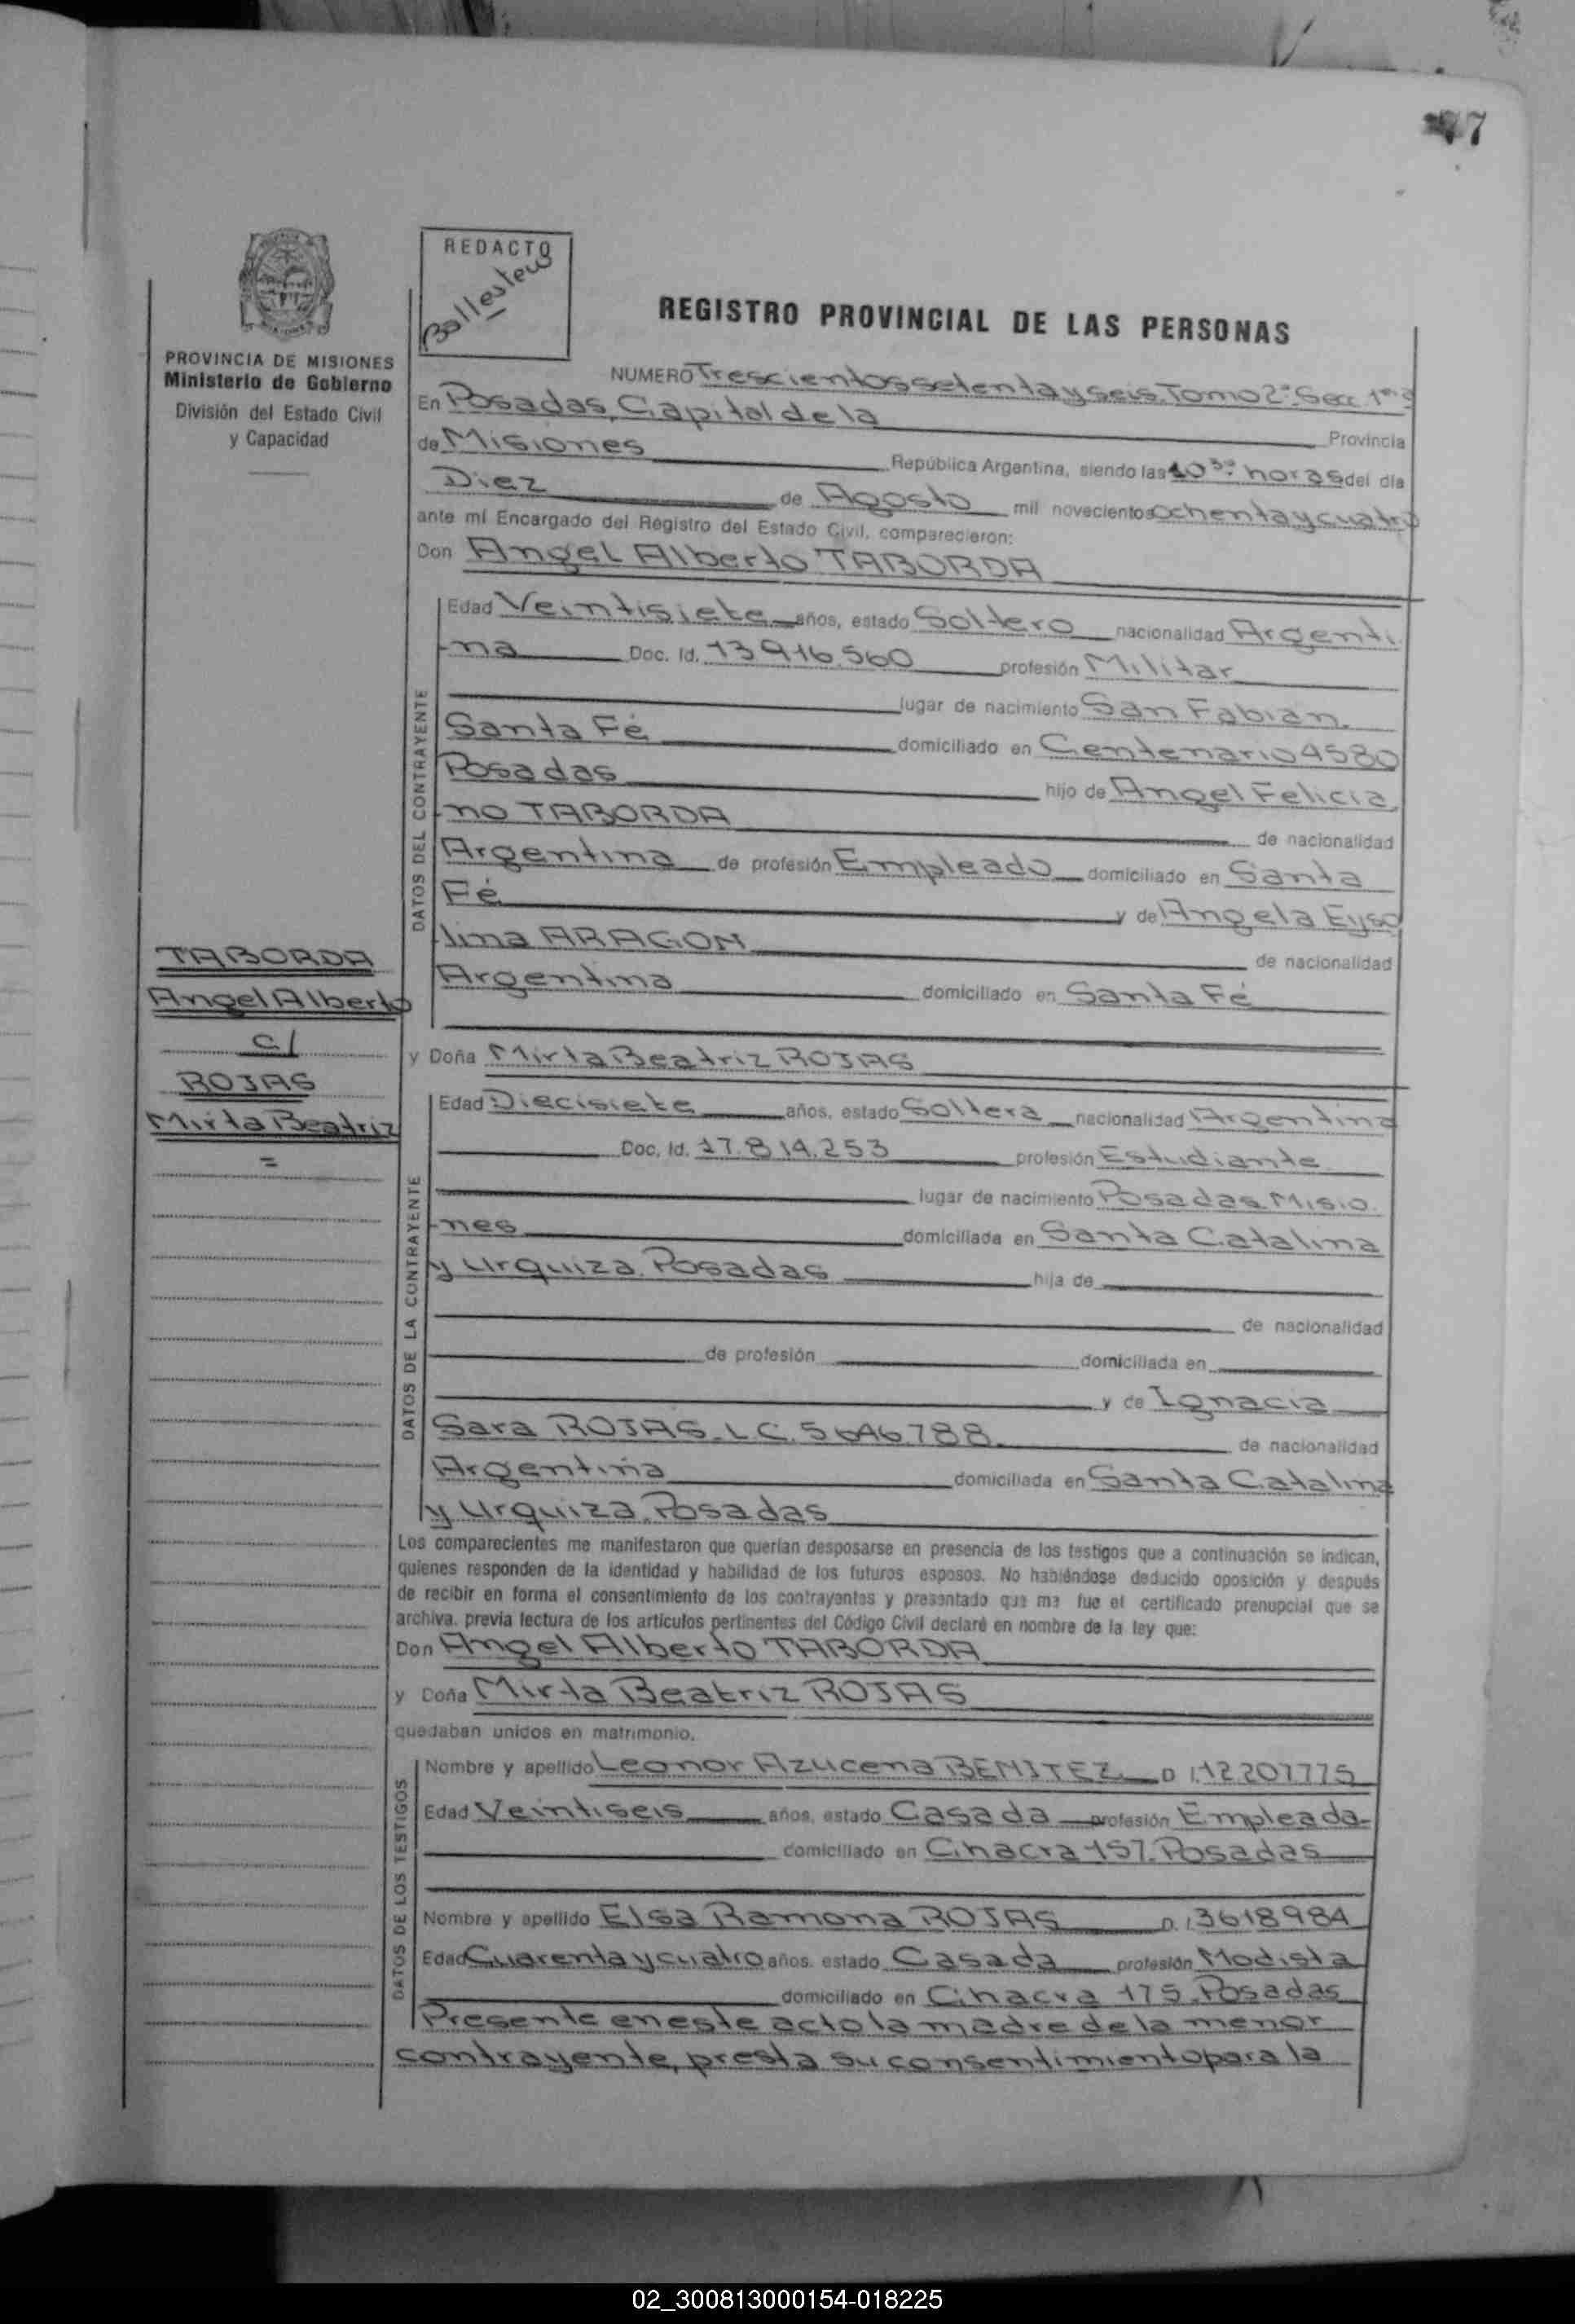 77
REDACTO
Ballestero
REGISTRO PROVINCIAL DE LAS PERSONAS
PROVINCIA DE MISIONES
Ministerio de Gobierno
División del Estado Civil
y Capacidad
NUMERO Trescientos setenta y seis. Tomo 2º. Secc 1ª
En Posadas, Capital de la Provincia
de Misiones República Argentina, siendo las 10 30 horas del día
Diez de Agosto mil novecientos ochenta y cuatro
ante mí Encargado del Registro del Estado Civil, comparecieron:
Don Angel Alberto TABORDA
DATOS DEL CONTRAYENTE
Edad Veintisiete años, estado Soltero nacionalidad Argenti
na Doc. Id. 13.916.560 profesión Militar
lugar de nacimiento San Fabian.
Santa Fé domiciliado en Centenario 4580
Posadas hijo de Angel Felicia
no TABORDA de nacionalidad
Argentina de profesión Empleado domiciliado en Santa
Fé y de Angela
lina ARAGON de nacionalidad
Argentina domiciliado en Santa Fé
TABORDA
Angel Alberto
c/
ROJAS
Mirta Beatriz
=
y Doña Mirta Beatriz ROJAS
DATOS DE LA CONTRAYENTE
Edad Diecisiete años, estado Soltera nacionalidad Argentina
Doc. Id. 17.814.253 profesión Estudiante
lugar de nacimiento Posadas Misio
nes domiciliada en Santa Catalina
y Urquiza. Posadas hija de
de nacionalidad
de profesión domiciliada en
y de Ignacia
Sara ROJAS. L.C. 5.646.788. de nacionalidad
Argentina domiciliada en Santa Catalina
y Urquiza. Posadas
Los comparecientes me manifestaron que querían desposarse en presencia de los testigos que a continuación se indican,
quienes responden de la identidad y habilidad de los futuros esposos. No habiéndose deducido oposición y después
de recibir en forma el consentimiento de los contrayentes y presentado que me fue el certificado prenupcial que se
archiva, previa lectura de los artículos pertinentes del Código Civil declaré en nombre de la ley que:
Don Angel Alberto TABORDA
y Doña Mirta Beatriz ROJAS
quedaban unidos en matrimonio.
DATOS DE LOS TESTIGOS
Nombre y apellido Leonor Azucena BENITEZ D I. 12207775
Edad Veintiseis años, estado Casada profesión Empleada
domiciliado en Chacra 157. Posadas
Nombre y apellido Elsa Ramona ROJAS D. I. 3618984
Edad Cuarenta y cuatro años, estado Casada profesión Modista
domiciliado en Chacra 175. Posadas
Presente en este acto la madre de la menor
contrayente, presta su consentimiento para la
02_300813000154-018225